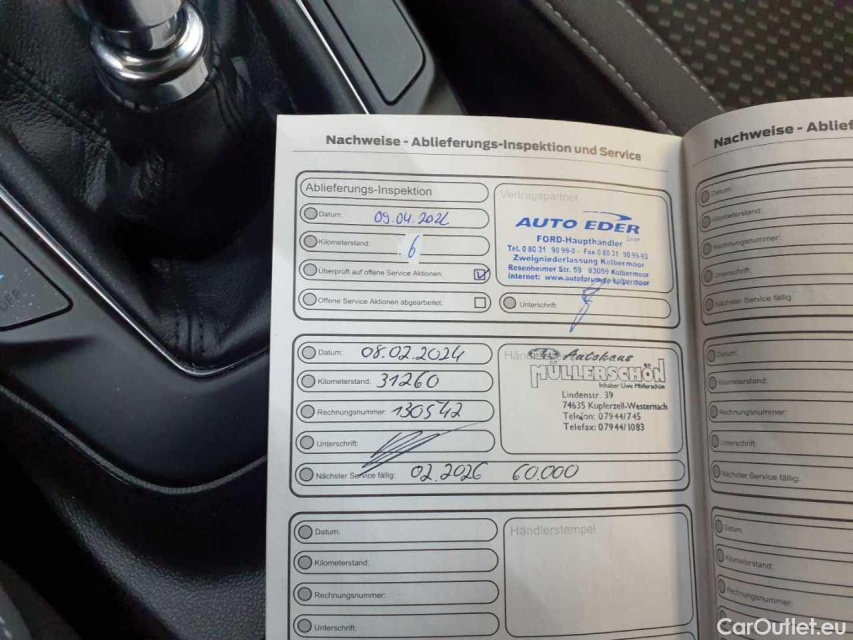 Nachweise - Ablieferungs-Inspektion und Service
Ablieferungs-Inspektion
Datum: 09.04.202
Kilometerstand: 6
Überprüft auf offene Service Aktionen:
Offene Service Aktionen abgearbeitet:
Vertragspartner
AUTO EDER
FORD-Haupthändler
Tel. 0 80 31 90 99-0 · Fax 0 80 31 90 99-93
Zweigniederlassung Kolbermoor
Rosenheimer Str. 59 83059 Kolbermoor
Internet: www.autoforum.de/kolbermoor
Unterschrift:
Datum: 08.02.2024
Kilometerstand: 31260
Rechnungsnummer: 130542
Unterschrift:
Autohaus
MÜLLERSCHÖN
Inhaber Uwe Müllerschön
Lindenstr. 39
74635 Kupferzell-Westernach
Telefon: 07944/745
Telefax: 07944/1083
Nächster Service fällig: 02.2026 60.000
Datum:
Kilometerstand:
Rechnungsnummer:
Unterschrift:
Händlerstempel
Nachweise - Ablief
Datum:
Kilometerstand:
Rechnungsnummer:
Unterschrift:
Nächster Service fällig:
Datum:
Kilometerstand:
Rechnungsnummer:
Unterschrift:
Nächster Service fällig:
Datum:
Kilometerstand:
Rechnungsnummer:
Unterschrift:
CarOutlet.eu